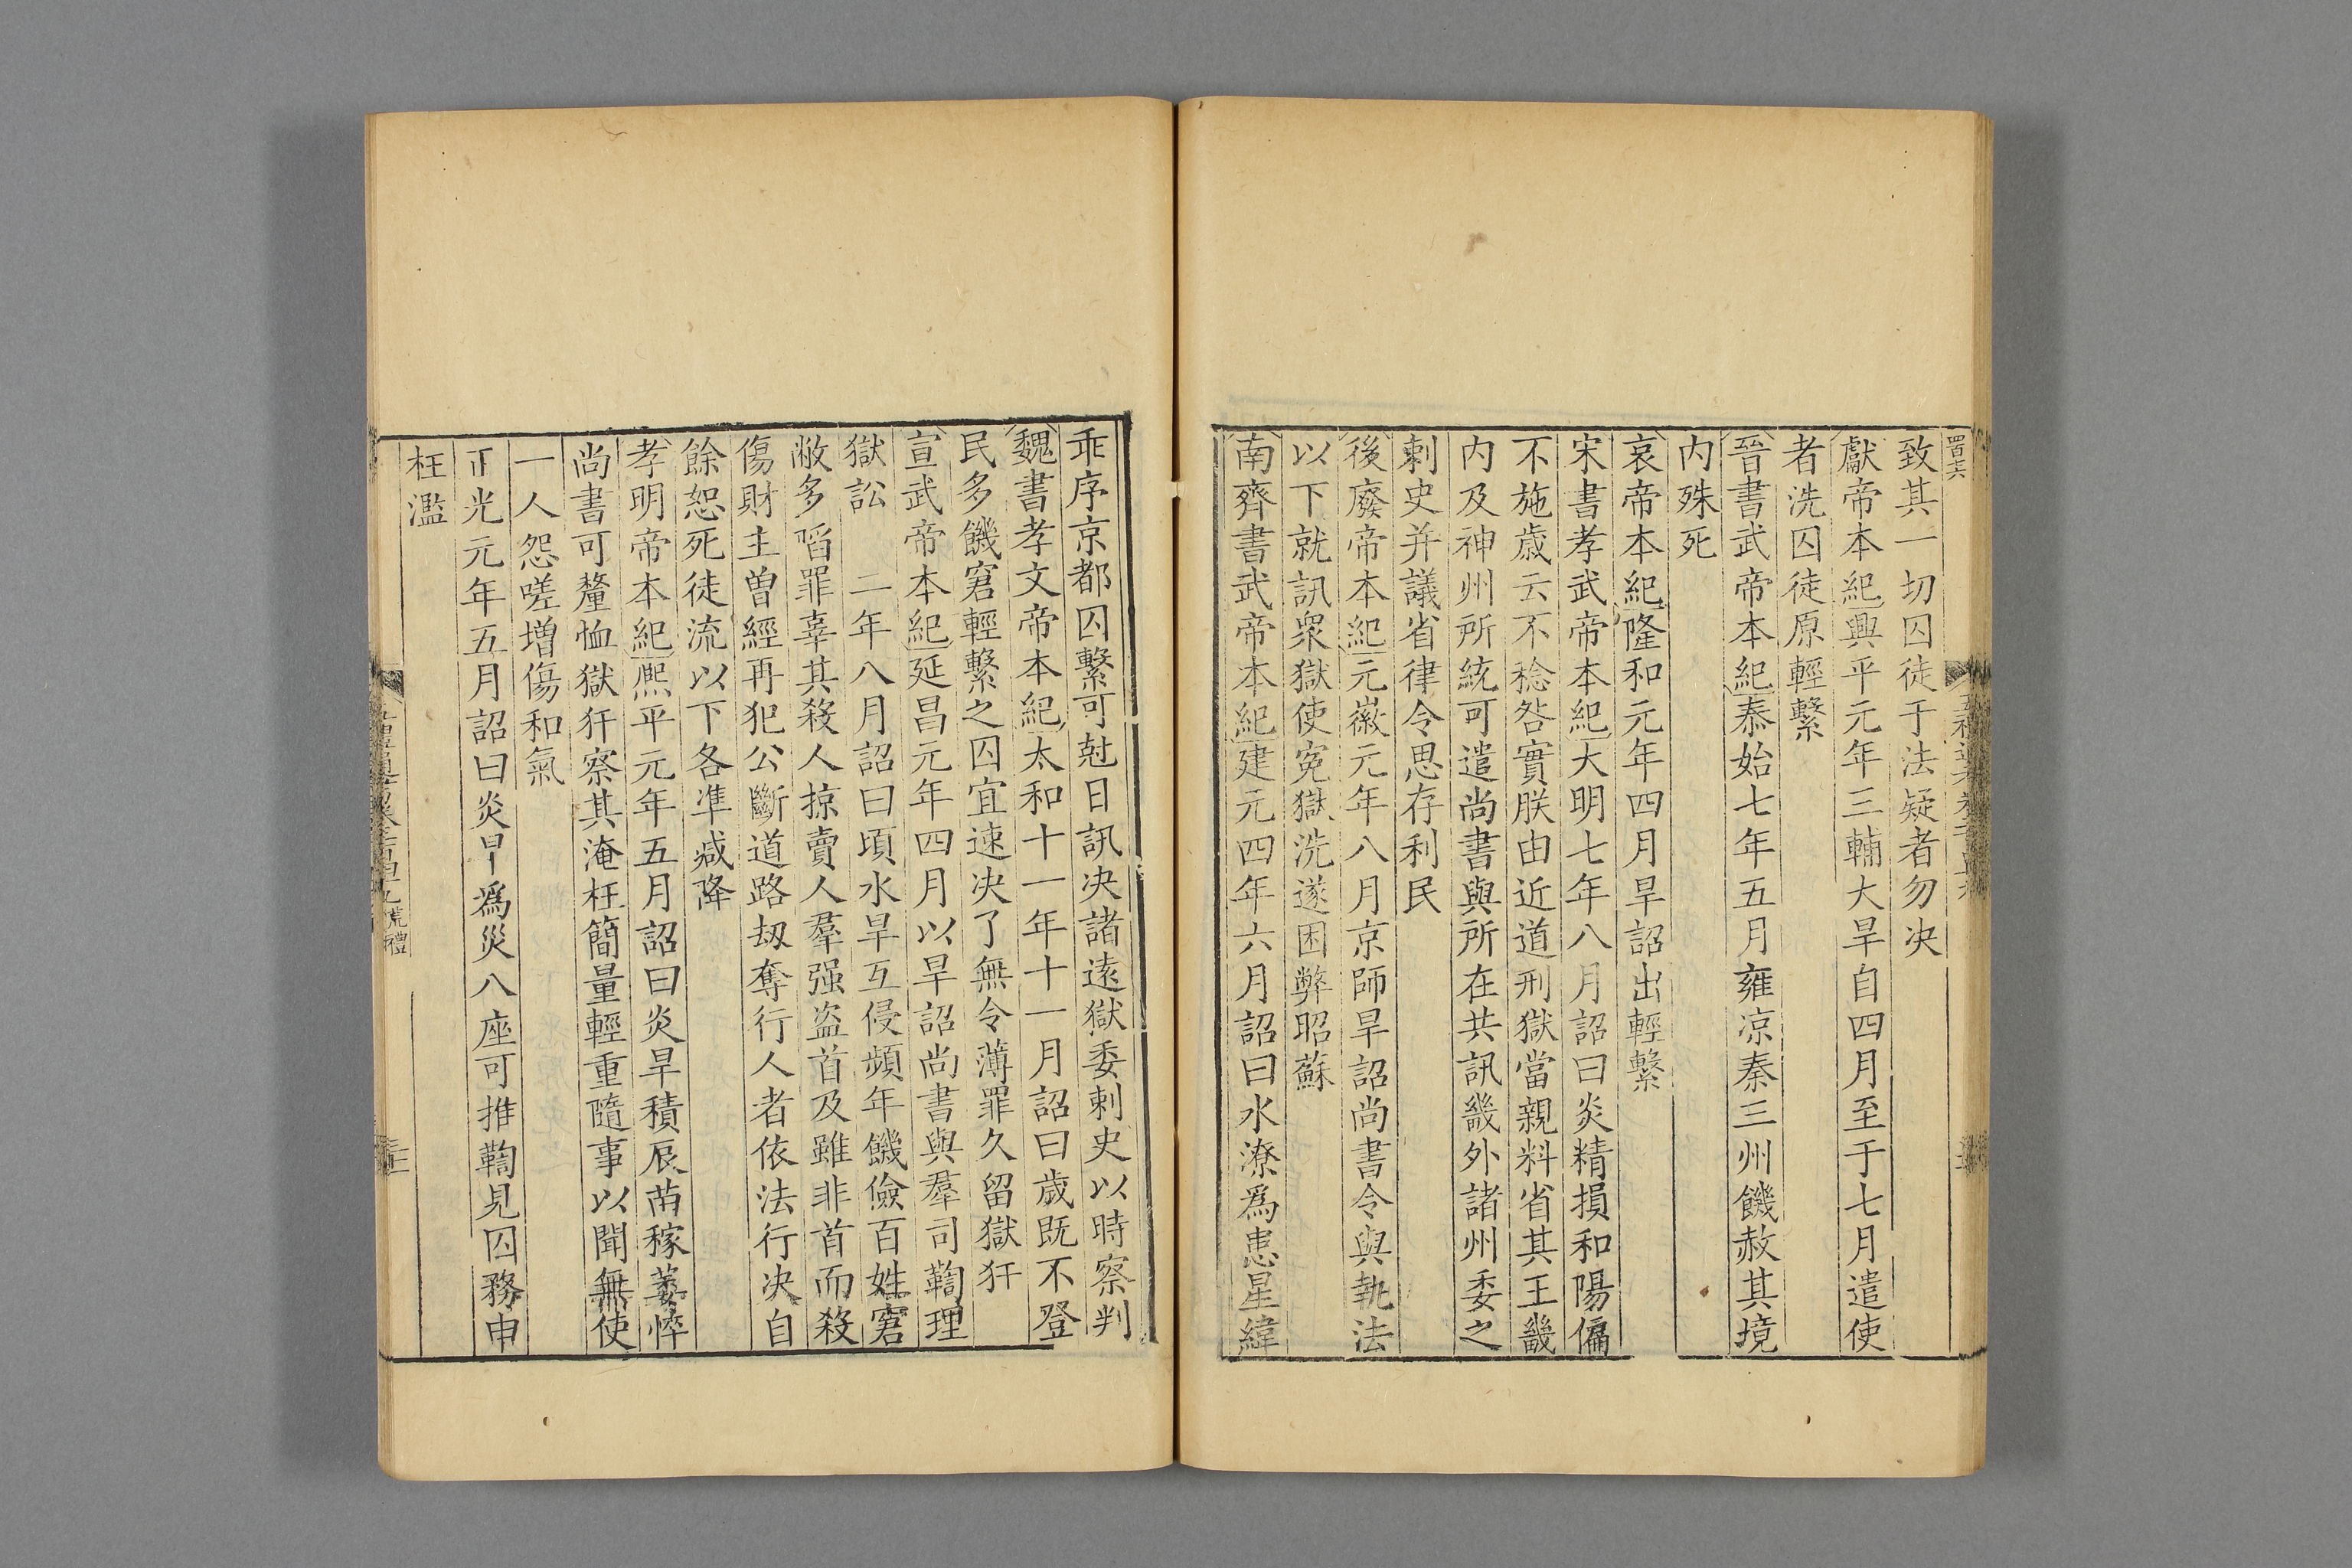 致其一切囚徒于法疑者勿決
獻帝本紀興平元年三輔大旱自四月至于七月遣使
者洗囚徒原輕繫
晉書武帝本紀泰始七年五月雍凉秦三州饑赦其境
内殊死
哀帝本紀隆和元年四月旱詔出輕繫
宋書孝武帝本紀大明七年八月詔曰炎精損和陽偏
不施歲云不稔咎實朕由近道刑獄當親料省其王畿
内及神州所統可遣尚書與所在共訊畿外諸州委之
刺史并議省律令思存利民
後廢帝本紀元徽元年八月京師旱詔尚書令與執法
以下就訊衆獄使寃獄洗遂困弊昭蘇
南齊書武帝本紀建元四年六月詔曰水潦爲患星緯
乖序京都囚繫可尅日訊决諸遠獄委刺史以時察判
魏書孝文帝本紀太和十一年十一月詔曰歲既不登
民多饑窘輕繫之囚宜速决了無令薄罪久留獄犴
宣武帝本紀延昌元年四月以旱詔尚書與羣司鞫理
獄訟 二年八月詔曰頃水旱互侵頻年饑儉百姓窘
敝多䧟罪辜其殺人掠賣人羣强盗首及雖非首而殺
傷財主曾經再犯公斷道路刼奪行人者依法行决自
餘恕死徒流以下各準减降
孝明帝本紀熙平元年五月詔曰炎旱積辰苗稼萎悴
尚書可釐恤獄犴察其淹枉簡量輕重隨事以聞無使
一人怨嗟增傷和氣
正光元年五月詔曰炎旱爲災八座可推鞫見囚務申
枉濫
荒禮